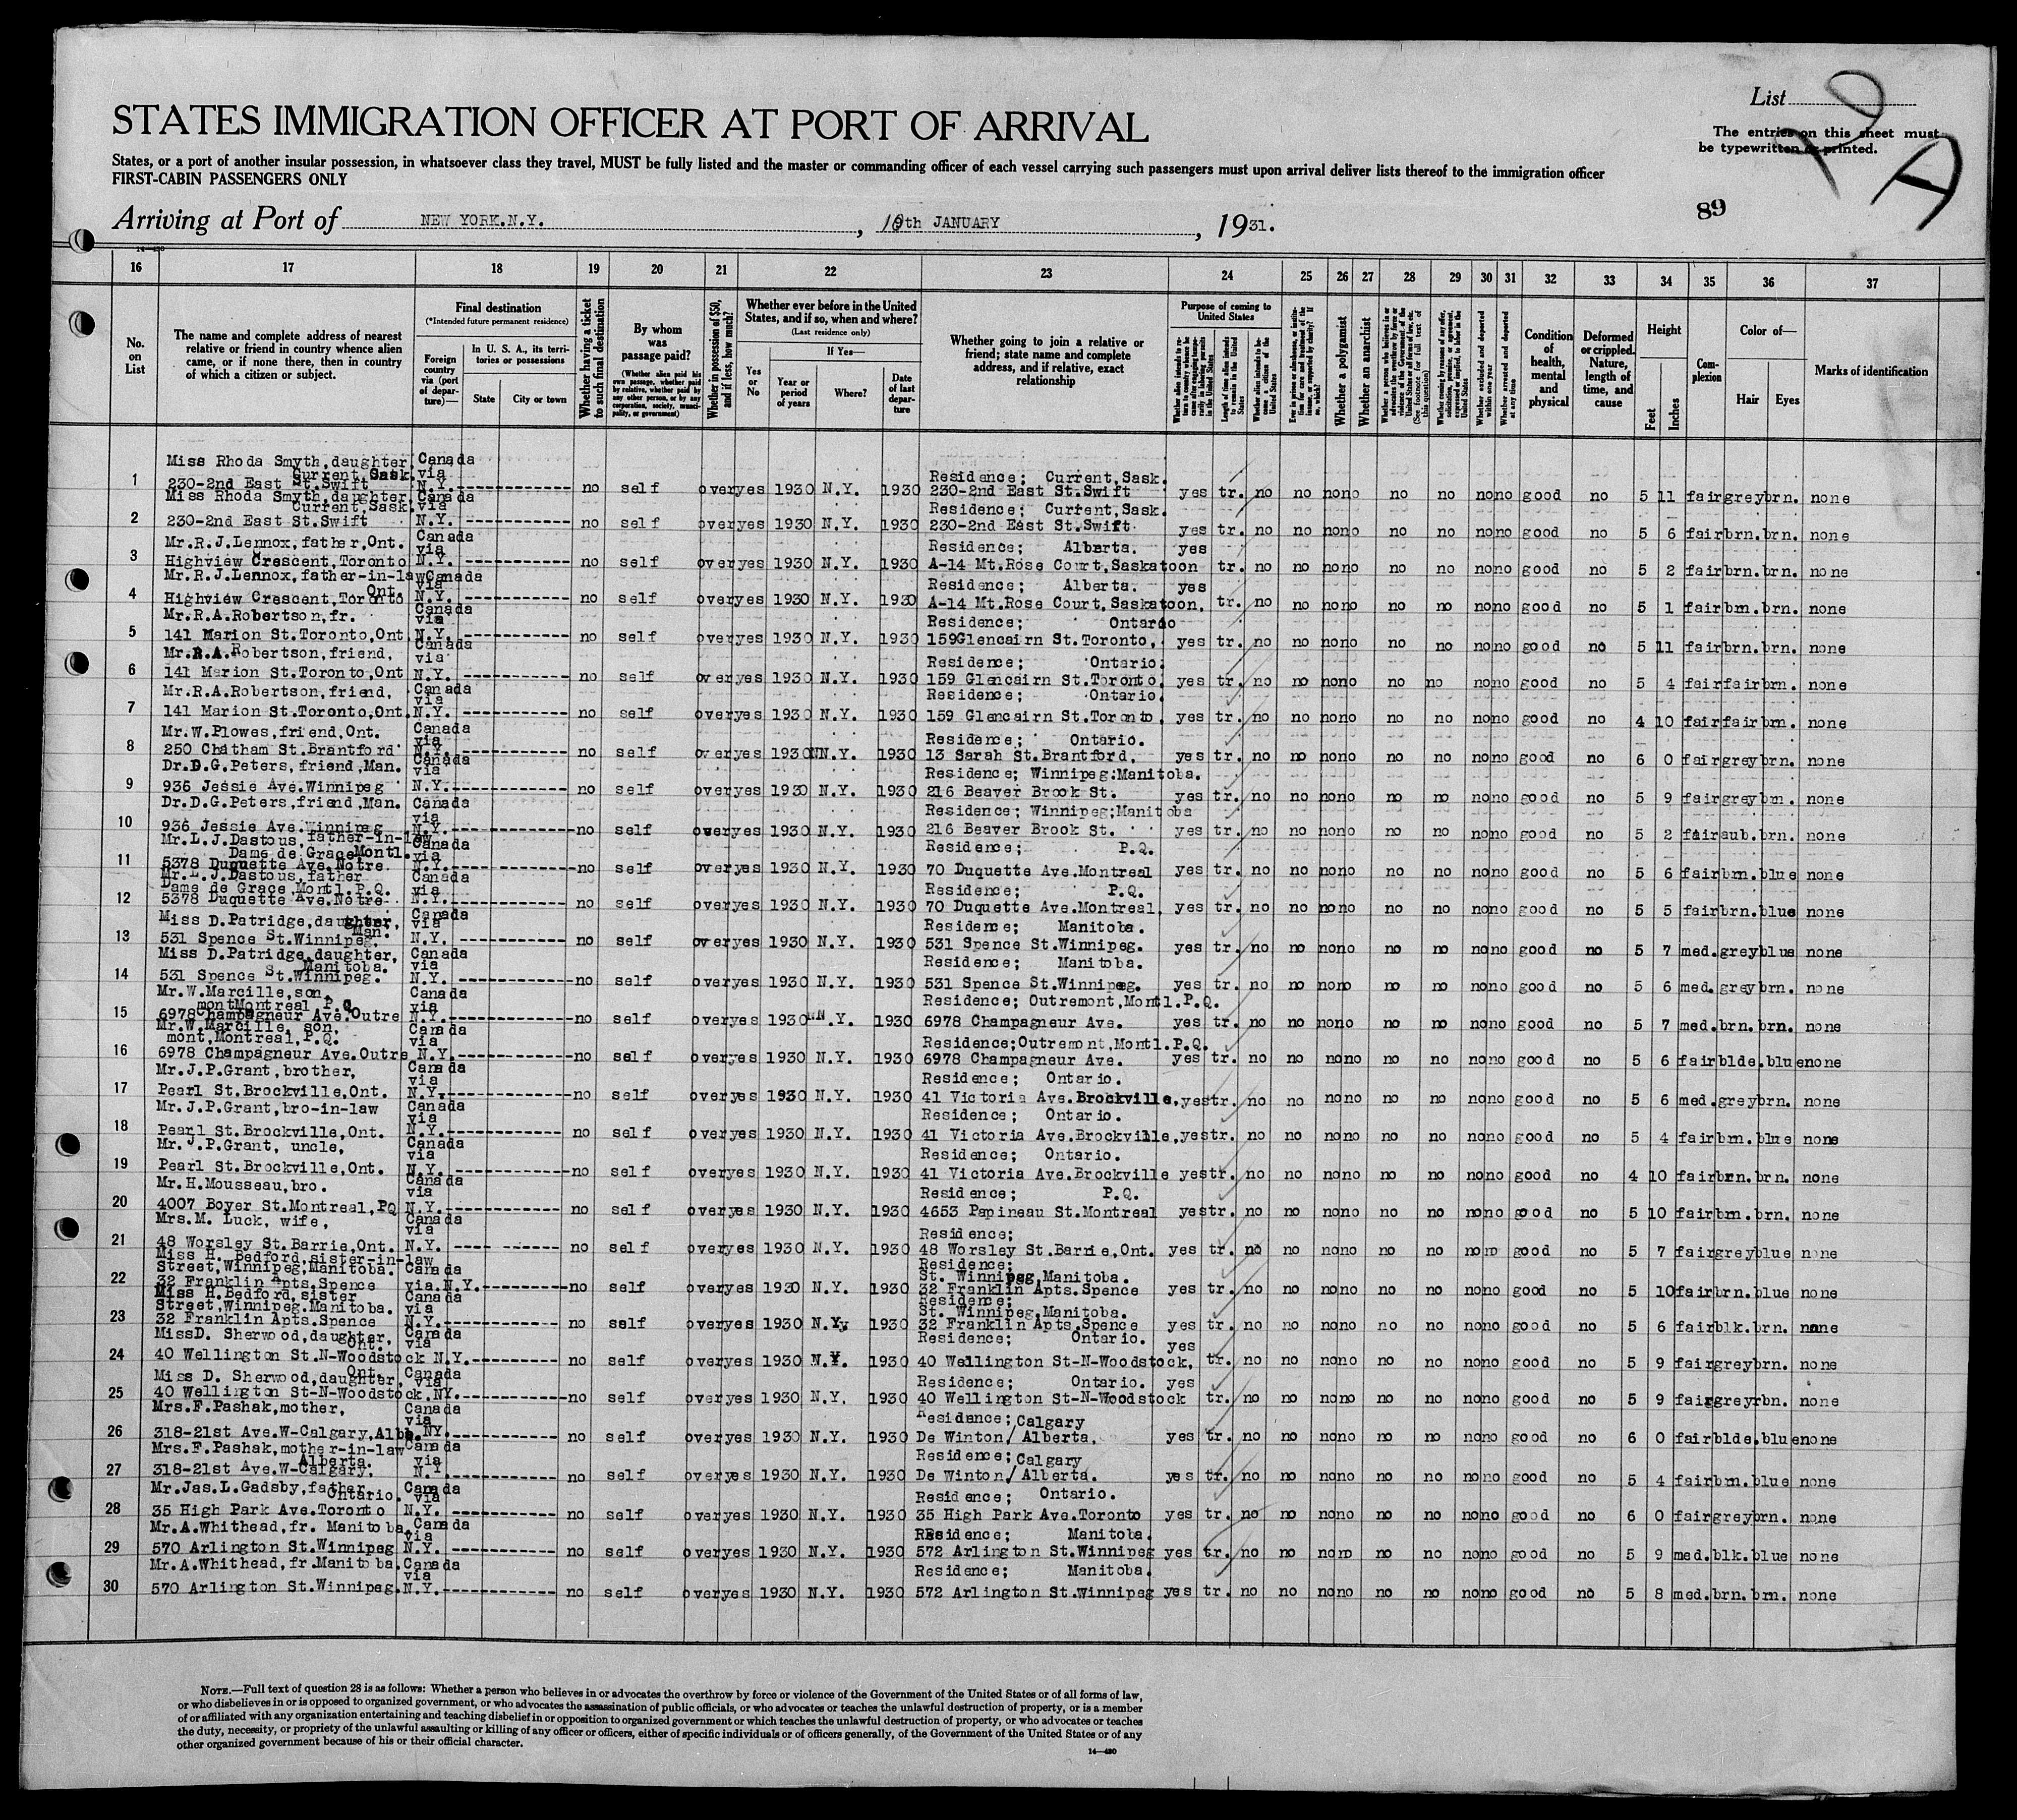 List
The entries on this sheet must
be typewritten or printed.
STATES IMMIGRATION OFFICER AT PORT OF ARRIVAL
States, or a port of another insular possession, in whatsoever class they travel, MUST be fully listed and the master or commanding officer of each vessel carrying such passengers must upon arrival deliver lists thereof to the immigration officer
FIRST-CABIN PASSENGERS ONLY
A
89
Arriving at Port of NEW YORK.N.Y. , 10th JANUARY , 1931.
16 17 18 19 20 21 22 23 24 25 26 27 28 29 30 31 32 33 34 35 36 37
No. on List
The name and complete address of nearest relative or friend in country whence alien came, or if none there, then in country of which a citizen or subject.
Final destination
(*Intended future permanent residence)
Foreign country via (port of departure)—
In U. S. A., its territories or possessions
State City or town
Whether having a ticket to such final destination
By whom was passage paid?
(Whether alien paid his own passage, whether paid by relative, whether paid by any other person, or by any corporation, society, municipality, or government)
Whether in possession of $50, and if less, how much?
Whether ever before in the United States, and if so, when and where?
(Last residence only)
Yes or No
If Yes—
Year or period of years
Where?
Date of last departure
Whether going to join a relative or friend; state name and complete address, and if relative, exact relationship
Purpose of coming to United States
Length of time alien intends to remain in the United States
Whether alien intends to become a citizen of the United States
Whether a polygamist
Whether an anarchist
Whether excluded and deported within one year
Whether arrested and deported at any time
Condition of health, mental and physical
Deformed or crippled. Nature, length of time, and cause
Height
Feet Inches
Complexion
Color of—
Hair Eyes
Marks of identification
Miss Rhoda Smyth,daughter, Canada
Current,Sask. via Residence; Current,Sask.
1 230-2nd East St.Swift N.Y. no self over yes 1930 N.Y. 1930 230-2nd East St.Swift yes tr. no no no no no no no no good no 5 11 fair grey brn. none
Miss Rhoda Smyth,daughter, Canada
Current,Sask. via Residence; Current,Sask.
2 230-2nd East St.Swift N.Y. no self over yes 1930 N.Y. 1930 230-2nd East St.Swift yes tr. no no no no no no no no good no 5 6 fair brn. brn. none
Mr.R.J.Lennox,father,Ont. Canada via Residence; Alberta. yes
3 Highview Crescent,Toronto N.Y. no self over yes 1930 N.Y. 1930 A-14 Mt.Rose Court,Saskatoon tr. no no no no no no no no good no 5 2 fair brn. brn. none
Mr.R.J.Lennox,father-in-law Canada via Residence; Alberta. yes
Ont.
4 Highview Crescent,Toronto N.Y. no self over yes 1930 N.Y. 1930 A-14 Mt.Rose Court,Saskatoon, tr. no no no no no no no no good no 5 1 fair brn. brn. none
Mr.R.A.Robertson,fr. Canada via Residence; Ontario
5 141 Marion St.Toronto,Ont. N.Y. no self over yes 1930 N.Y. 1930 159Glencairn St.Toronto, yes tr. no no no no no no no no good no 5 11 fair brn. brn. none
Mr.R.A.Robertson,friend, Canada via Residence; Ontario.
6 141 Marion St.Toronto,Ont N.Y. no self over yes 1930 N.Y. 1930 159 Glencairn St.Toronto. yes tr. no no no no no no no no good no 5 4 fair fair brn. none
Mr.R.A.Robertson,friend, Canada via Residence; Ontario.
7 141 Marion St.Toronto,Ont. N.Y. no self over yes 1930 N.Y. 1930 159 Glencairn St.Toronto, yes tr. no no no no no no no no good no 4 10 fair fair brn. none
Mr.W.Plowes,friend,Ont. Canada via Residence; Ontario.
8 250 Chatham St.Brantford N.Y. no self over yes 1930 NN.Y. 1930 13 Sarah St.Brantford, yes tr. no no no no no no no no good no 6 0 fair grey brn. none
Dr.D.G.Peters,friend,Man. Canada via Residence; Winnipeg;Manitoba.
9 936 Jessie Ave.Winnipeg N.Y. no self over yes 1930 N.Y. 1930 216 Beaver Brook St. yes tr. no no no no no no no no good no 5 9 fair grey brn. none
Dr.D.G.Peters,friend,Man. Canada via Residence; Winnipeg;Manitoba
10 936 Jessie Ave.Winnipeg N.Y. no self over yes 1930 N.Y. 1930 216 Beaver Brook St. yes tr. no no no no no no no no good no 5 2 fair aub. brn. none
Mr.L.J.Dastous,father-in-law Canada
Dame de Grace,Montl. via Residence; P.Q.
11 5378 Duquette Ave.Notre N.Y. no self over yes 1930 N.Y. 1930 70 Duquette Ave.Montreal yes tr. no no no no no no no no good no 5 6 fair brn. blue none
Mr.L.J.Dastous,father Canada
Dame de Grace,Montl.P.Q. via Residence; P.Q.
12 5378 Duquette Ave.Notre N.Y. no self over yes 1930 N.Y. 1930 70 Duquette Ave.Montreal, yes tr. no no no no no no no no good no 5 5 fair brn. blue none
Miss D.Patridge,daughter, Canada via Residence; Manitoba.
Man.
13 531 Spence St.Winnipeg. N.Y. no self over yes 1930 N.Y. 1930 531 Spence St.Winnipeg. yes tr. no no no no no no no no good no 5 7 med. grey blue none
Miss D.Patridge,daughter, Canada via Residence; Manitoba.
Manitoba.
14 531 Spence St.Winnipeg. N.Y. no self over yes 1930 N.Y. 1930 531 Spence St.Winnipeg. yes tr. no no no no no no no no good no 5 6 med. grey brn. none
Mr.W.Marcille,son, Canada
montMontreal P.Q via Residence; Outremont,Montl.P.Q.
15 6978 Champagneur Ave.Outre N.Y. no self over yes 1930 NN.Y. 1930 6978 Champagneur Ave. yes tr. no no no no no no no no good no 5 7 med. brn. brn. none
Mr.W.Marcille, son, Canada
mont,Montreal,P.Q. via Residence;Outremont,Montl.P.Q.
16 6978 Champagneur Ave.Outre N.Y. no self over yes 1930 N.Y. 1930 6978 Champagneur Ave. yes tr. no no no no no no no no good no 5 6 fair blde. blue none
Mr.J.P.Grant,brother, Canada via Residence; Ontario.
17 Pearl St.Brockville,Ont. N.Y. no self over yes 1930 N.Y. 1930 41 Victoria Ave.Brockville, yes tr. no no no no no no no no good no 5 6 med. grey brn. none
Mr.J.P.Grant,bro-in-law Canada via Residence; Ontario.
18 Pearl St.Brockville,Ont. N.Y. no self over yes 1930 N.Y. 1930 41 Victoria Ave.Brockville, yes tr. no no no no no no no no good no 5 4 fair brn. blue none
Mr.J.P.Grant, uncle, Canada via Residence; Ontario.
19 Pearl St.Brockville,Ont. N.Y. no self over yes 1930 N.Y. 1930 41 Victoria Ave.Brockville yes tr. no no no no no no no no good no 4 10 fair brn. brn. none
Mr.H.Mousseau,bro. Canada via Residence; P.Q.
20 4007 Boyer St.Montreal,PQ N.Y. no self over yes 1930 N.Y. 1930 4653 Papineau St.Montreal yes tr. no no no no no no no no good no 5 10 fair brn. brn. none
Mrs.M. Luck, wife, Canada via Residence;
21 48 Worsley St.Barrie,Ont. N.Y. no self over yes 1930 N.Y. 1930 48 Worsley St.Barrie,Ont. yes tr. no no no no no no no no good no 5 7 fair grey blue none
Miss H. Bedford,sister-in-law Residence;
Street,Winnipeg,Manitoba. Canada St. Winnipeg,Manitoba.
22 32 Franklin Apts.Spence via.N.Y. no self over yes 1930 N.Y. 1930 32 Franklin Apts.Spence yes tr. no no no no no no no no good no 5 10 fair brn. blue none
Miss H.Bedford,sister Canada Residence;
Street,Winnipeg.Manitoba. via St. Winnipeg,Manitoba.
23 32 Franklin Apts.Spence N.Y. no self over yes 1930 N.Y. 1930 32 Franklin Apts.Spence yes tr. no no no no no no no no good no 5 6 fair blk. brn. none
MissD. Sherwood,daughter, Canada Residence; Ontario. yes
Ont. via
24 40 Wellington St.N-Woodstock N.Y. no self over yes 1930 N.Y. 1930 40 Wellington St-N-Woodstock, tr. no no no no no no no no good no 5 9 fair grey brn. none
Ont. Canada
Miss D. Sherwood,daughter, via Residence; Ontario. yes
25 40 Wellington St-N-Woodstock,NY. no self over yes 1930 N.Y. 1930 40 Wellington St-N-Woodstock tr. no no no no no no no no good no 5 9 fair grey rbn. none
Mrs.F.Pashak,mother, Canada via Residence; Calgary
26 318-21st Ave.W-Calgary,Alb. NY. no self over yes 1930 N.Y. 1930 De Winton/ Alberta. yes tr. no no no no no no no no good no 6 0 fair blde. blue none
Mrs.F.Pashak,mother-in-law Canada Residence; Calgary
Alberta. via
27 318-21st Ave.W-Calgary. N.Y no self over yes 1930 N.Y. 1930 De Winton/ Alberta. yes tr. no no no no no no no no good no 5 4 fair brn. blue none
Mr.Jas.L.Gadsby,father. Canada
Ontario. via Residence; Ontario.
28 35 High Park Ave.Toronto N.Y. no self over yes 1930 N.Y. 1930 35 High Park Ave.Toronto yes tr. no no no no no no no no good no 6 0 fair grey brn. none
Mr.A.Whithead,fr. Manitoba, Canada via Residence; Manitoba.
29 570 Arlington St.Winnipeg N.Y. no self over yes 1930 N.Y. 1930 572 Arlington St.Winnipeg yes tr. no no no no no no no no good no 5 9 med. blk. blue none
Mr.A.Whithead,fr.Manitoba. Canada via Residence; Manitoba.
30 570 Arlington St.Winnipeg. N.Y. no self over yes 1930 N.Y. 1930 572 Arlington St.Winnipeg yes tr. no no no no no no no no good no 5 8 med. brn. brn. none
NOTE.—Full text of question 28 is as follows: Whether a person who believes in or advocates the overthrow by force or violence of the Government of the United States or of all forms of law,
or who disbelieves in or is opposed to organized government, or who advocates the assassination of public officials, or who advocates or teaches the unlawful destruction of property, or is a member
of or affiliated with any organization entertaining and teaching disbelief in or opposition to organized government or which teaches the unlawful destruction of property, or who advocates or teaches
the duty, necessity, or propriety of the unlawful assaulting or killing of any officer or officers, either of specific individuals or of officers generally, of the Government of the United States or of any
other organized government because of his or their official character.
14—430